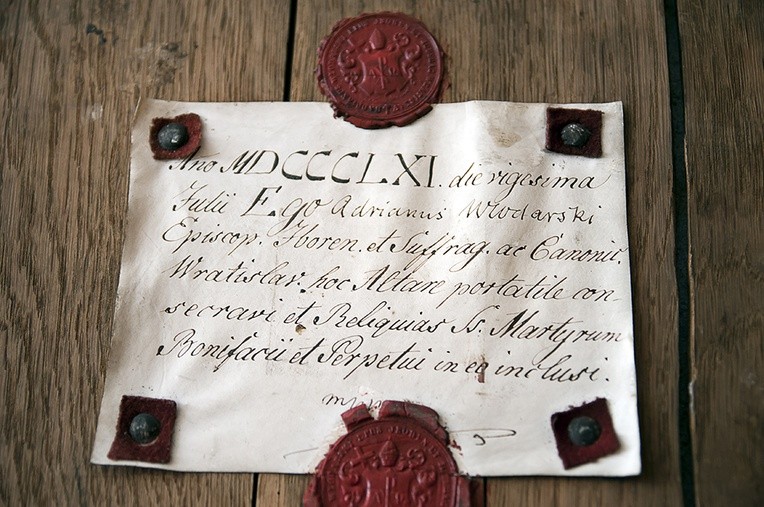 Ano MDCCCLXI. die vigesima
Julii Ego Adrianus Wlodarski
Episcop. Iboren. et Suffrag. ac Canonic.
Wratislav. hoc Altare portatile con-
secravi et Reliquias Ss. Martyrum
Bonifacii et Perpetui in eo inclusi.